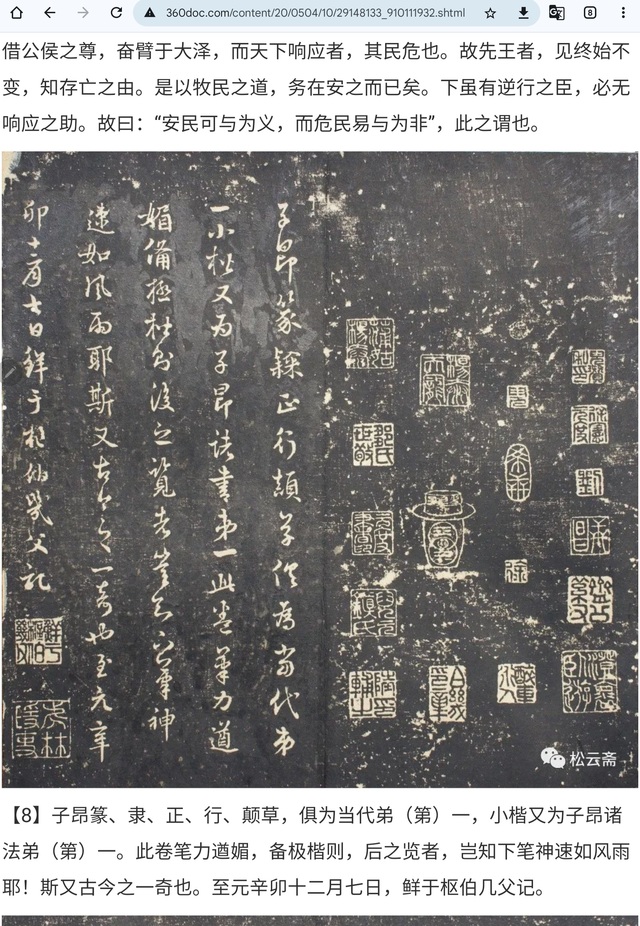 360doc.com/content/20/0504/10/29148133_910111932.shtml
8
借公侯之尊，奋臂于大泽，而天下响应者，其民危也。故先王者，见终始不
变，知存亡之由。是以牧民之道，务在安之而已矣。下虽有逆行之臣，必无
响应之助。故曰：“安民可与为义，而危民易与为非”，此之谓也。
子昂篆隸正行顛草俱為當代弟
一小楷又为子昂诸書弟一此卷筆力遒
媚備極楷則後之覽者豈知下筆神
速如風雨耶斯又古今之一奇也至元辛
卯十二月七日鲜于枢伯幾父記
鮮于
樞伯
幾父
松云斋
【8】子昂篆、隶、正、行、颠草，俱为当代弟（第）一，小楷又为子昂诸
法弟（第）一。此卷笔力遒媚，备极楷则，后之览者，岂知下笔神速如风雨
耶！斯又古今之一奇也。至元辛卯十二月七日，鲜于枢伯几父记。